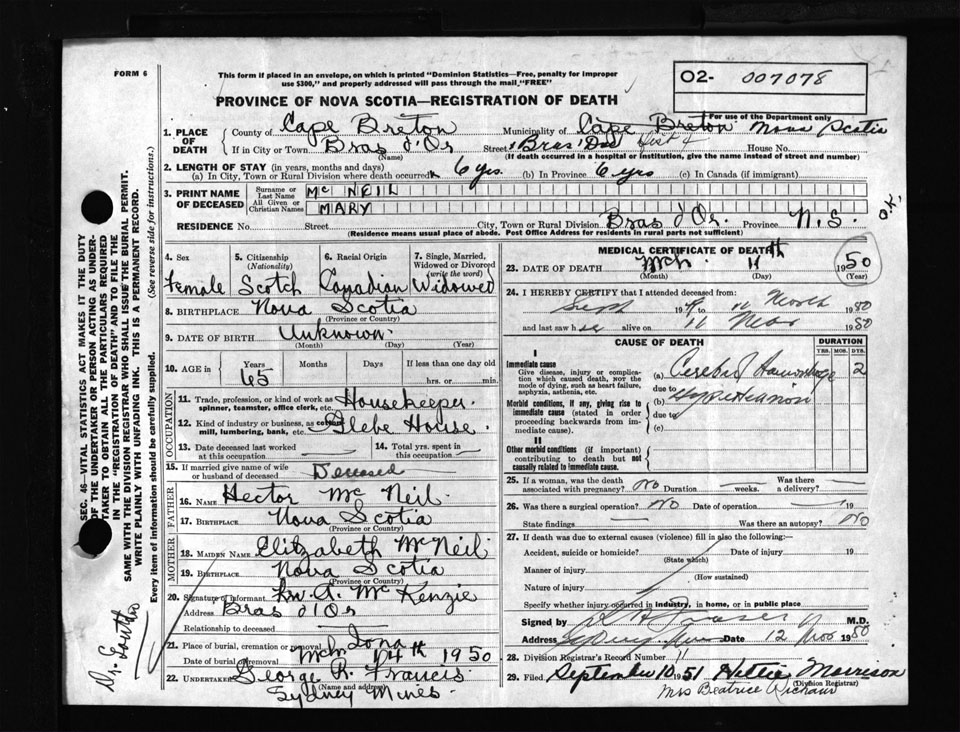 FORM 6
This form if placed in an envelope, on which is printed "Dominion Statistics—Free, penalty for improper
use $300," and properly addressed will pass through the mail "FREE"
PROVINCE OF NOVA SCOTIA—REGISTRATION OF DEATH
O2- 007078
For use of the Department only
1. PLACE OF DEATH
County of Cape Breton Municipality of Cape Breton Nova Scotia
If in City or Town Bras d'Or Street Bras Dor Dist 4 House No.
(Name) (If death occurred in a hospital or institution, give the name instead of street and number)
2. LENGTH OF STAY (in years, months and days)
(a) In City, Town or Rural Division where death occurred 6 yrs. (b) In Province 6 yrs (c) In Canada (if immigrant)
3. PRINT NAME OF DECEASED
Surname or Last Name Mc NEIL
All Given or Christian Names MARY
RESIDENCE No. Street City, Town or Rural Division Bras d'Or. Province N.S. O.K.
(Residence means usual place of abode. Post Office Address for residents in rural parts not sufficient)
4. Sex 5. Citizenship (Nationality) 6. Racial Origin 7. Single, Married, Widowed or Divorced (write the word)
Female Scotch Canadian Widowed
8. BIRTHPLACE Nova Scotia
(Province or Country)
9. DATE OF BIRTH Unknown.
(Month) (Day) (Year)
10. AGE in Years Months Days If less than one day old
65 hrs. or min.
OCCUPATION
11. Trade, profession, or kind of work as spinner, teamster, office clerk, etc. Housekeeper.
12. Kind of industry or business, as cotton mill, lumbering, bank, etc. Glebe House.
13. Date deceased last worked at this occupation
14. Total yrs. spent in this occupation
15. If married give name of wife or husband of deceased Deceased
FATHER
16. Name Hector Mc Neil.
17. Birthplace Nova Scotia
(Province or Country)
MOTHER
18. MAIDEN NAME Elizabeth McNeil
19. BIRTHPLACE Nova Scotia
(Province or Country)
20. Signature of informant A. Mc Kenzie
Address Bras d'Or
Relationship to deceased
21. Place of burial, cremation or removal Iona
Date of burial (removal) Mch 14th 1950
22. UNDERTAKER George R. Francis
(Name and address)
Sydney Mines.
MEDICAL CERTIFICATE OF DEATH
23. DATE OF DEATH Mch. 11th 1950
(Month) (Day) (Year)
24. I HEREBY CERTIFY that I attended deceased from:
Sept 19 to 11 March 1950
and last saw her alive on 11 Mar 1950
CAUSE OF DEATH DURATION
YRS. MOS. DYS.
I
Immediate cause
Give disease, injury or complication which caused death, not the mode of dying, such as heart failure, asphyxia, asthenia, etc.
(a) Cerebral Hemorrhage 2
due to
Morbid conditions, if any, giving rise to immediate cause (stated in order proceeding backwards from immediate cause).
(b) Hypertension
due to
(c)
II
Other morbid conditions (if important) contributing to death but not causally related to immediate cause.
25. If a woman, was the death associated with pregnancy? No Duration weeks. Was there a delivery?
26. Was there a surgical operation? No Date of operation 19
State findings Was there an autopsy? No
27. If death was due to external causes (violence) fill in also the following:—
Accident, suicide or homicide? Date of injury 19
(State which)
Manner of injury
(How sustained)
Nature of injury
Specify whether injury occurred in industry, in home, or in public place
Signed by Fraser M.D.
Address Sydney Mines Date 12 Mar 1950
28. Division Registrar's Record Number 11
29. Filed September 10 1951 Hattie Morrison
(Division Registrar)
Mrs Beatrice
SEC. 46—VITAL STATISTICS ACT MAKES IT THE DUTY
OF THE UNDERTAKER OR PERSON ACTING AS UNDER-
TAKER TO OBTAIN ALL THE PARTICULARS REQUIRED
IN THE "REGISTRATION OF DEATH" AND TO FILE THE
SAME WITH THE DIVISION REGISTRAR WHO SHALL ISSUE THE BURIAL PERMIT.
WRITE PLAINLY WITH UNFADING INK. THIS IS A PERMANENT RECORD.
Every item of information should be carefully supplied. (See reverse side for instructions.)